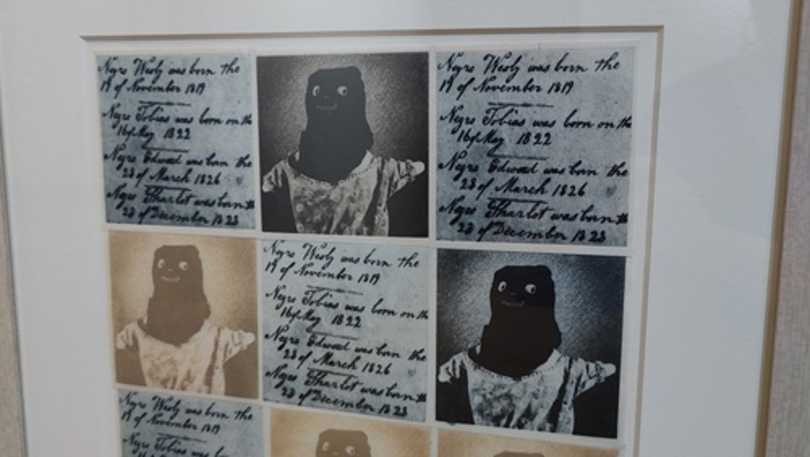 Negro Wesly was born the
19 of November 1819
Negro Tobias was born on the
16 of May 1822
Negro Edward was born the
23 of March 1826
Negro Sharlot was born the
23 of December 1823
Negro Wesly was born the
19 of November 1819
Negro Tobias was born on the
16 of May 1822
Negro Edward was born the
23 of March 1826
Negro Sharlot was born the
23 of December 1823
Negro Wesly was born the
19 of November 1819
Negro Tobias was born on the
16 of May 1822
Negro Edward was born the
23 of March 1826
Negro Sharlot was born the
23 of December 1823
Negro Wesly was born the
19 of November 1819
Negro Tobias was born on the